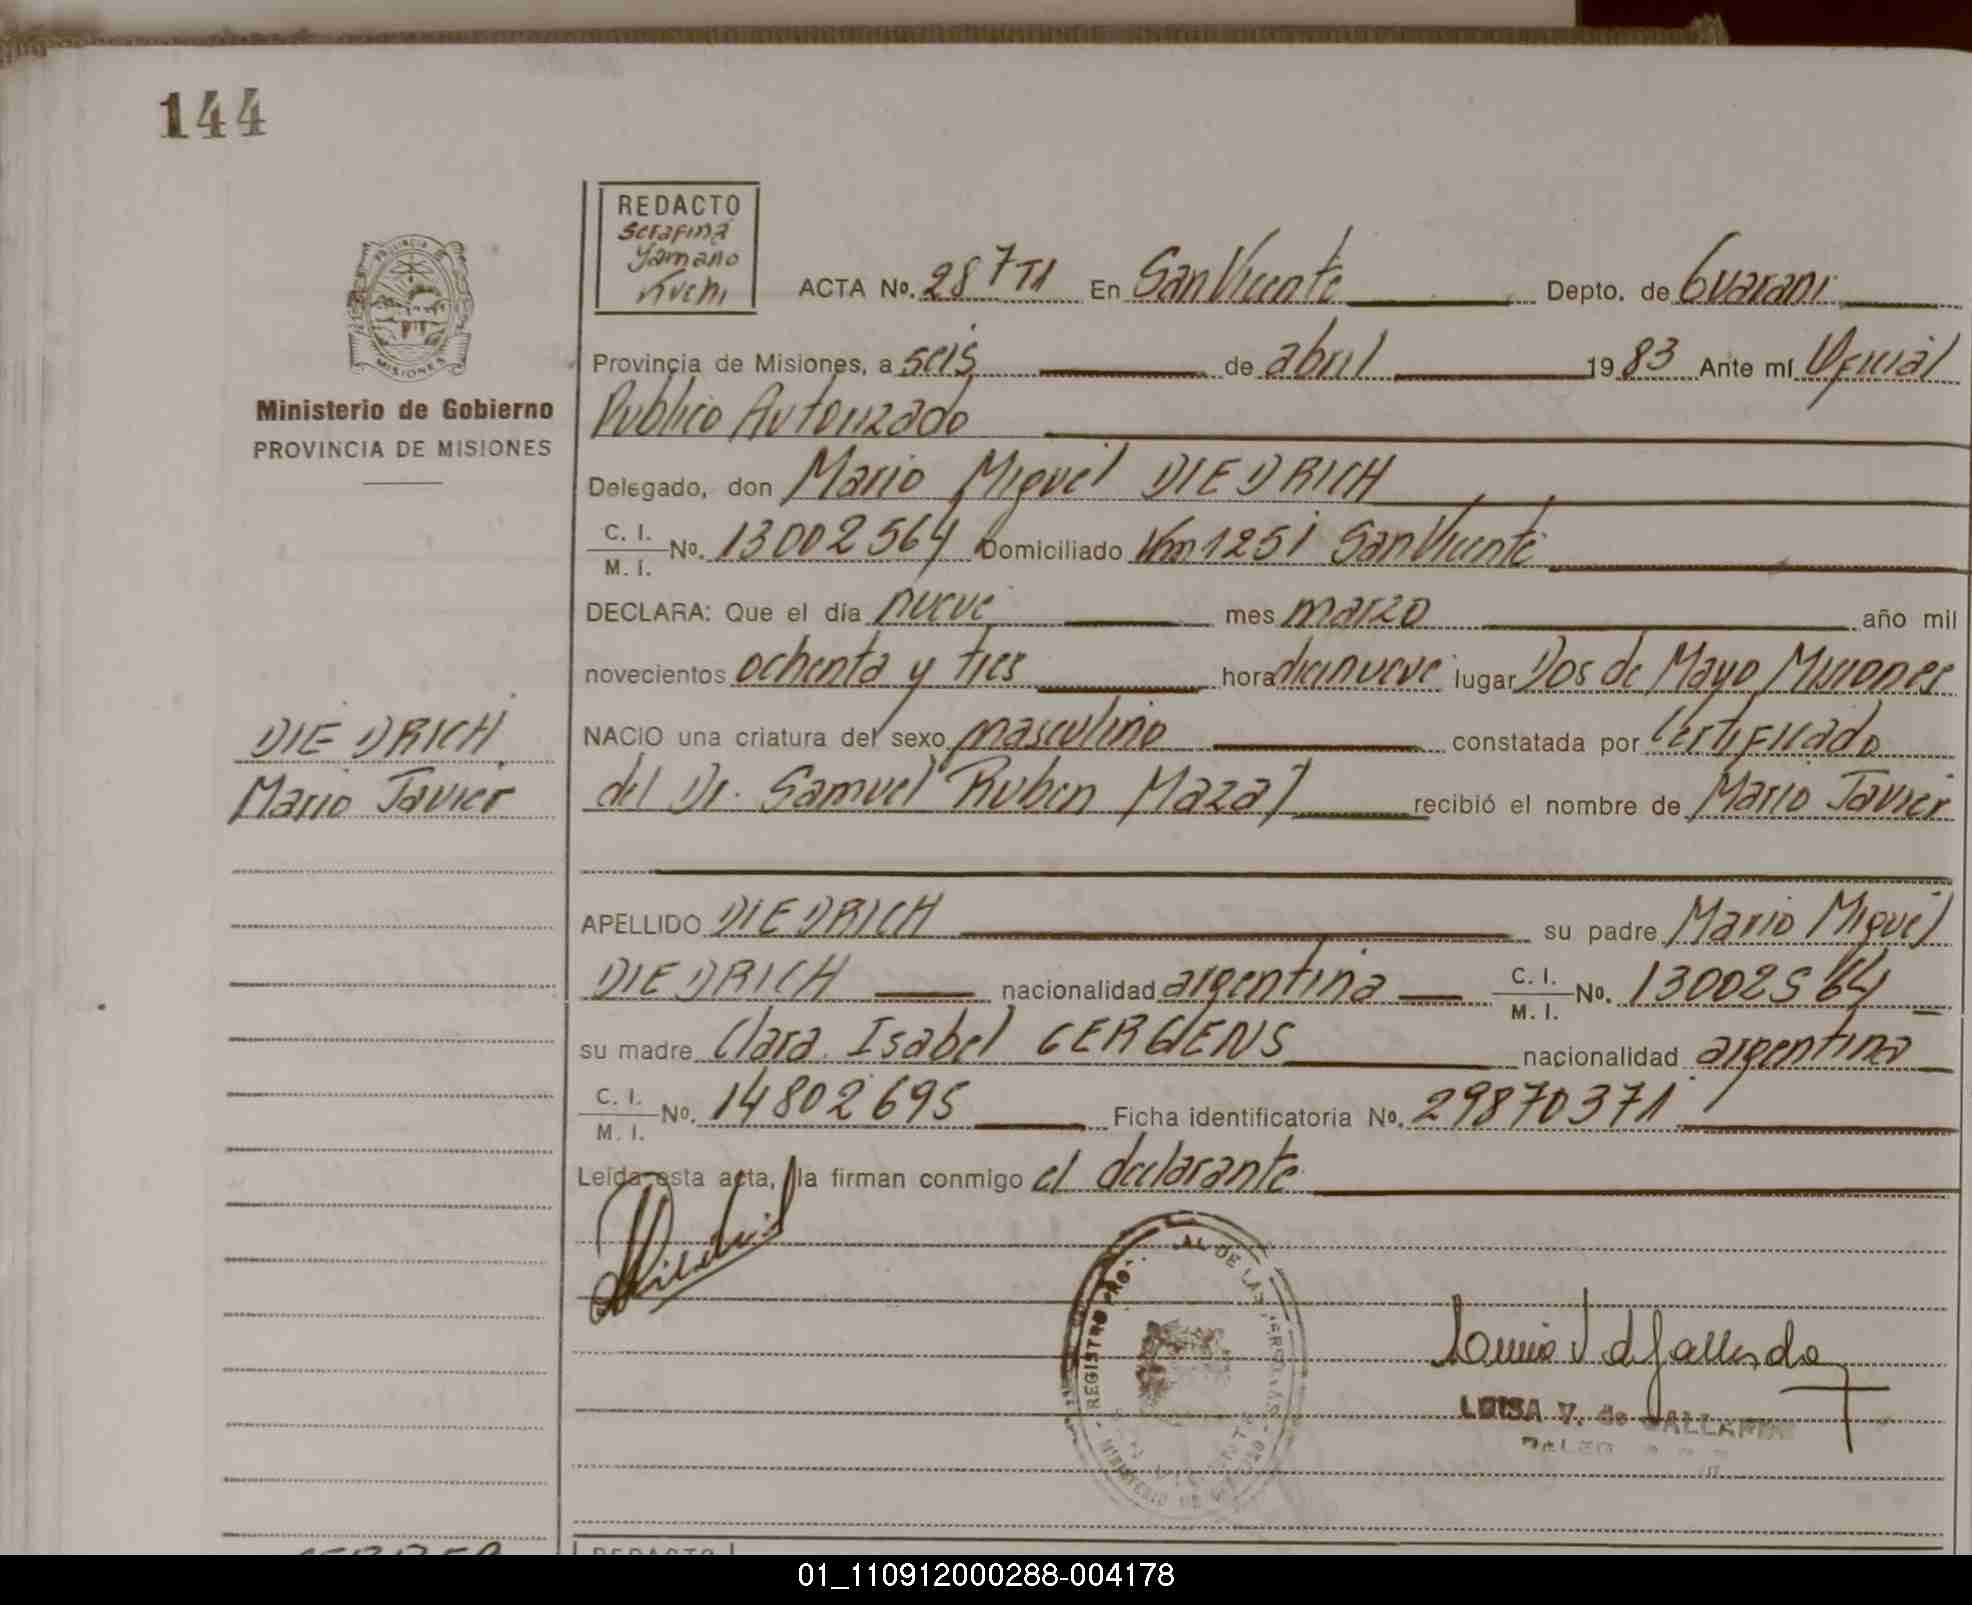 144
REDACTO
Serafina
Yamano
Kuchi
ACTA No. 287 TI En San Vicente Depto. de Guarani
Provincia de Misiones, a seis de abril 1983 Ante mí Oficial
Publico Autorizado
Ministerio de Gobierno
PROVINCIA DE MISIONES
Delegado, don Mario Miguel DIEDRICH
C. I.
M. I. No. 13002564 Domiciliado Km 1251 San Vicente
DECLARA: Que el día nueve mes marzo año mil
novecientos ochenta y tres hora diecinueve lugar Dos de Mayo Misiones
NACIO una criatura del sexo masculino constatada por Certificado
del Dr. Samuel Ruben Mazal recibió el nombre de Mario Javier
DIEDRICH
Mario Javier
APELLIDO DIEDRICH su padre Mario Miguel
DIEDRICH nacionalidad argentina C. I. M. I. No. 13002564
su madre Clara Isabel GERGENS nacionalidad argentina
C. I.
M. I. No. 14802695 Ficha identificatoria No. 29870371
Leída esta acta, la firman conmigo el declarante
REGISTRO PRO AL DE LAS PERSONAS
MINISTERIO DE
LUISA V. de GALLARDO
REDACTO
01_110912000288-004178